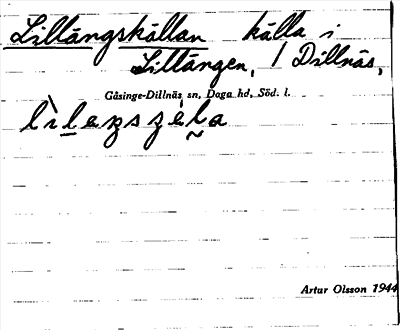 Lillängskällan källa i
Lillängen, / Dillnäs,
Gåsinge-Dillnäs sn, Daga hd, Söd. l.
Artur Olsson 1944